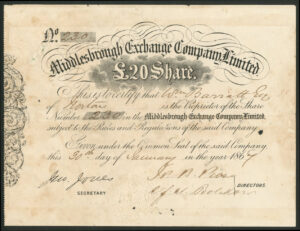 No 230
Middlesbrough Exchange Company, Limited.
£20 Share.
This is to Certify that Wm Barratt Esq
of Norton is the Proprietor of the Share
Number 230 in the Middlesbrough Exchange Company, Limited.
subject to the Rules and Regulations of the said Company.
Given under the Common Seal of the said Company,
this 30th day of January in the year 1867
Jno. Jones
SECRETARY
DIRECTORS.